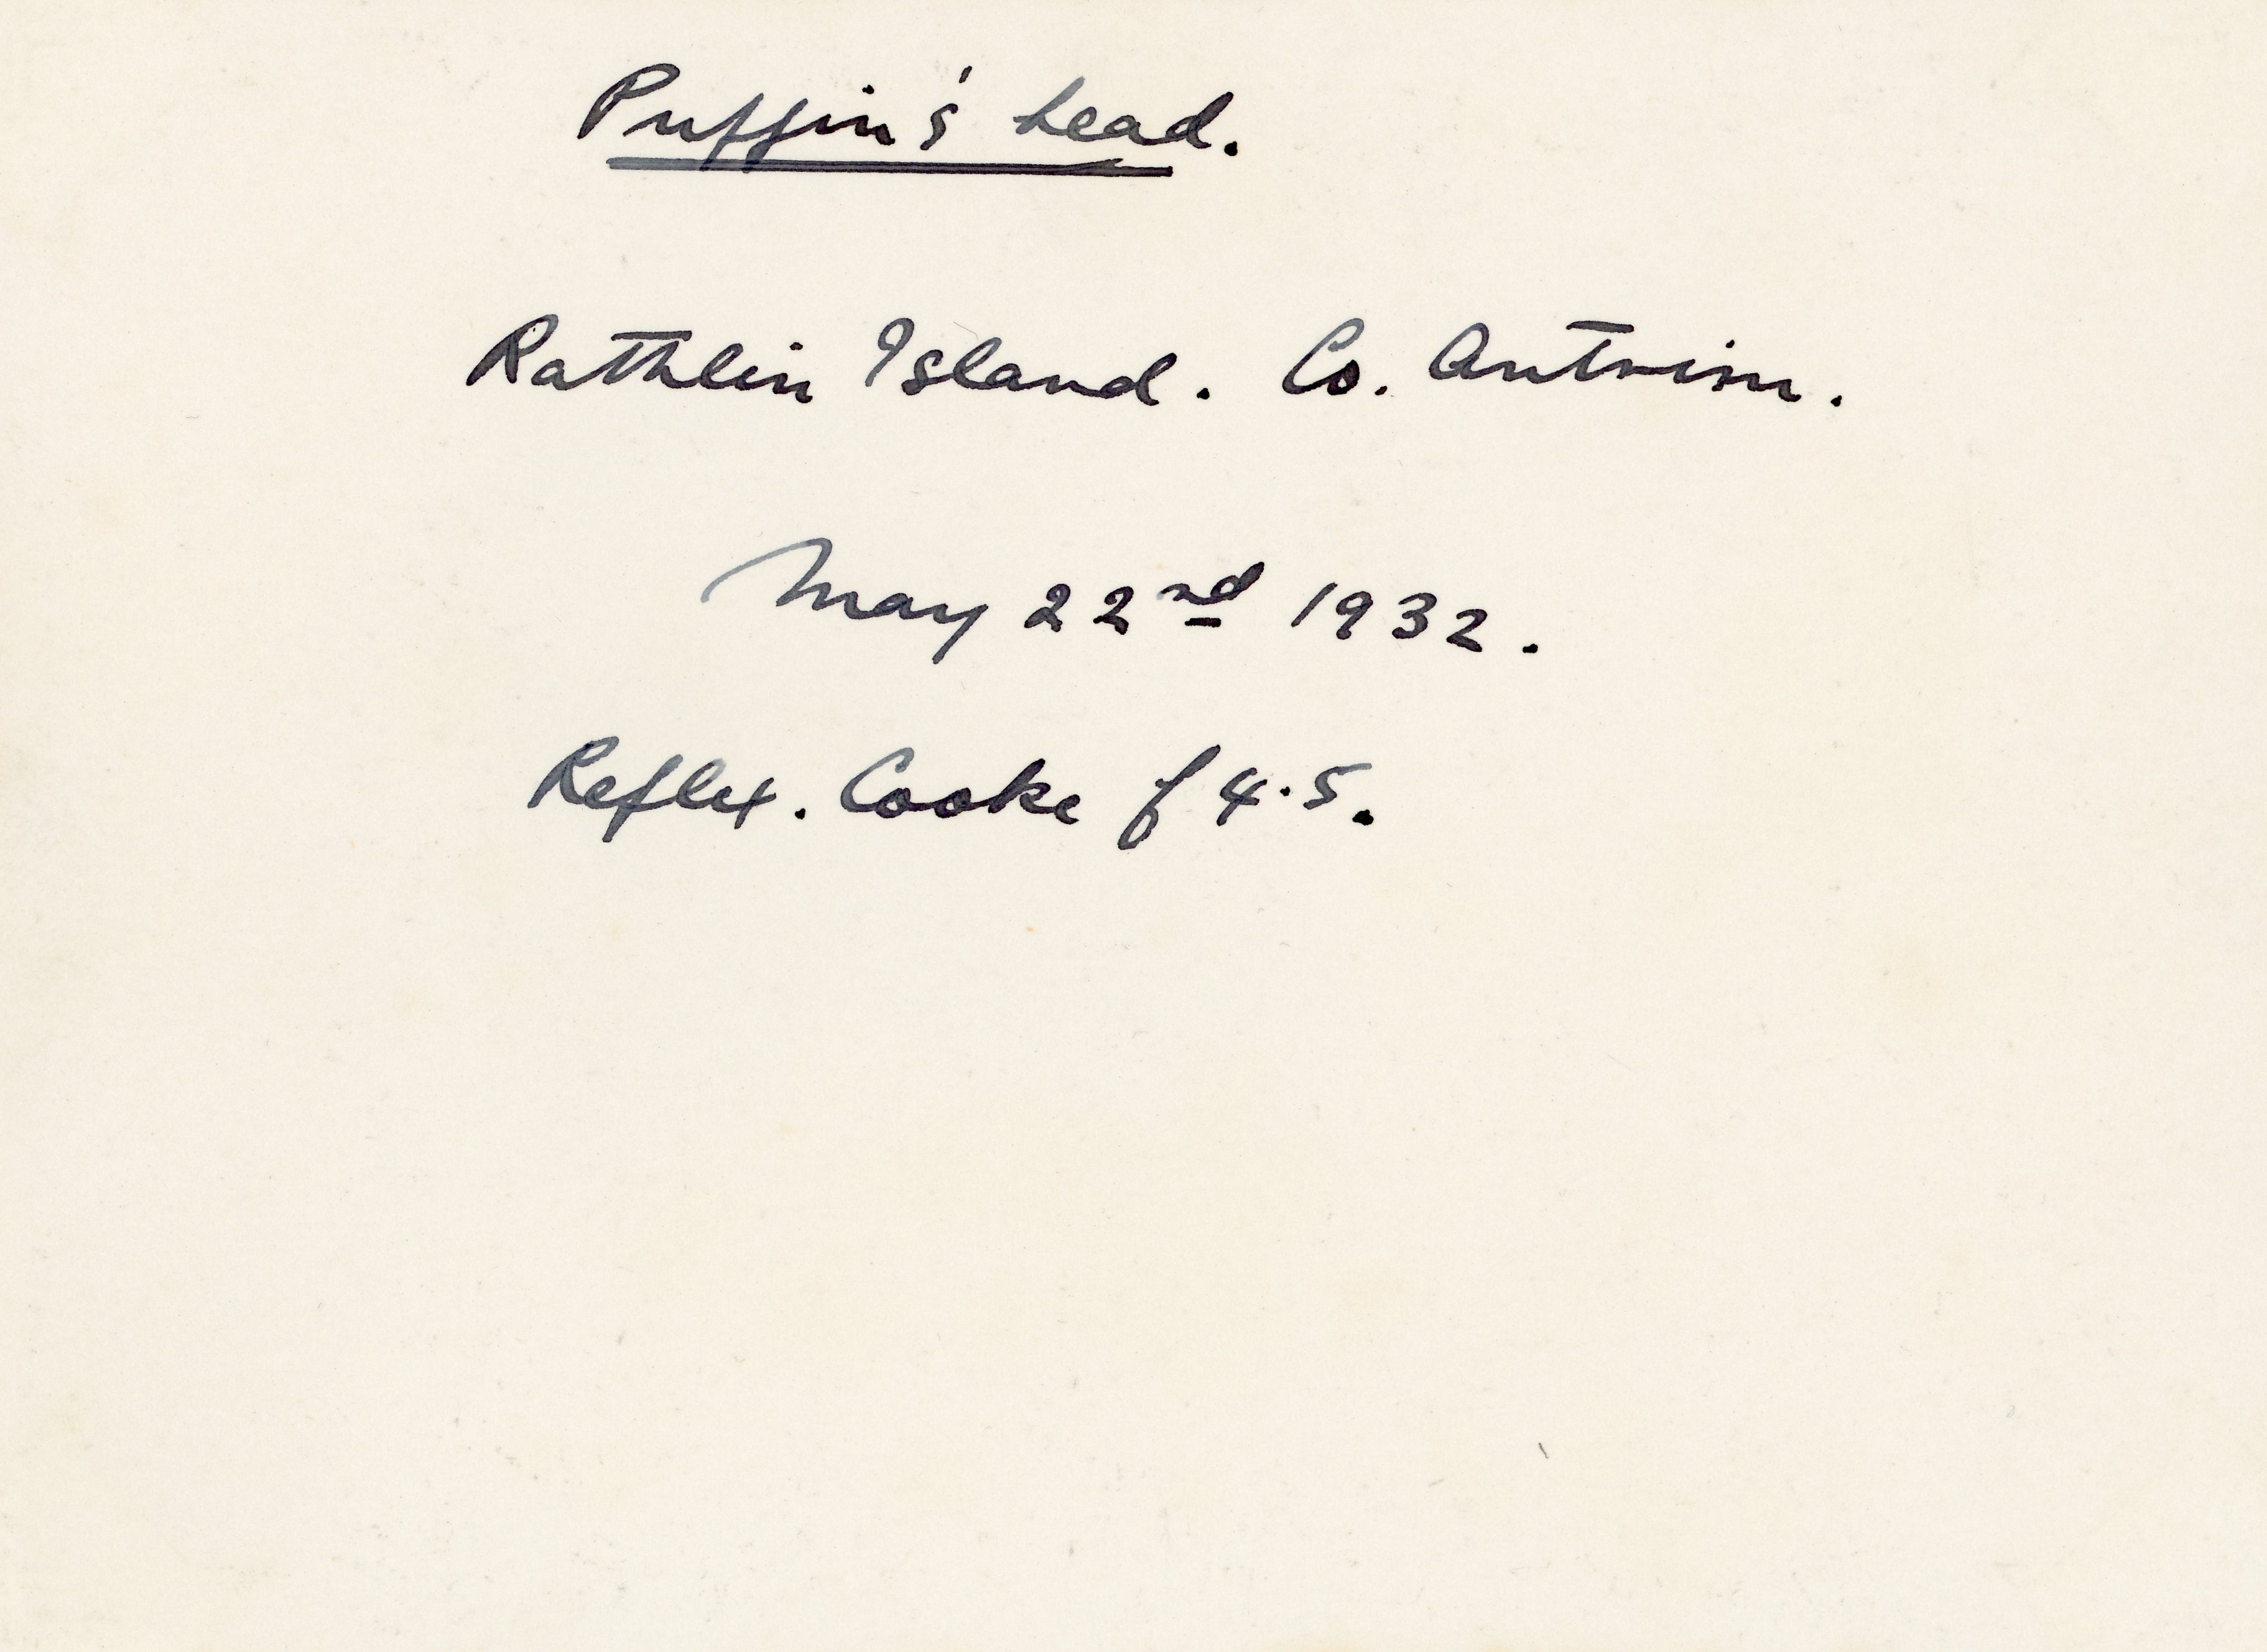 Puffin's head.
Rathlin Island. Co. Antrim.
May 22nd 1932.
Reflex. Cooke f 4.5.